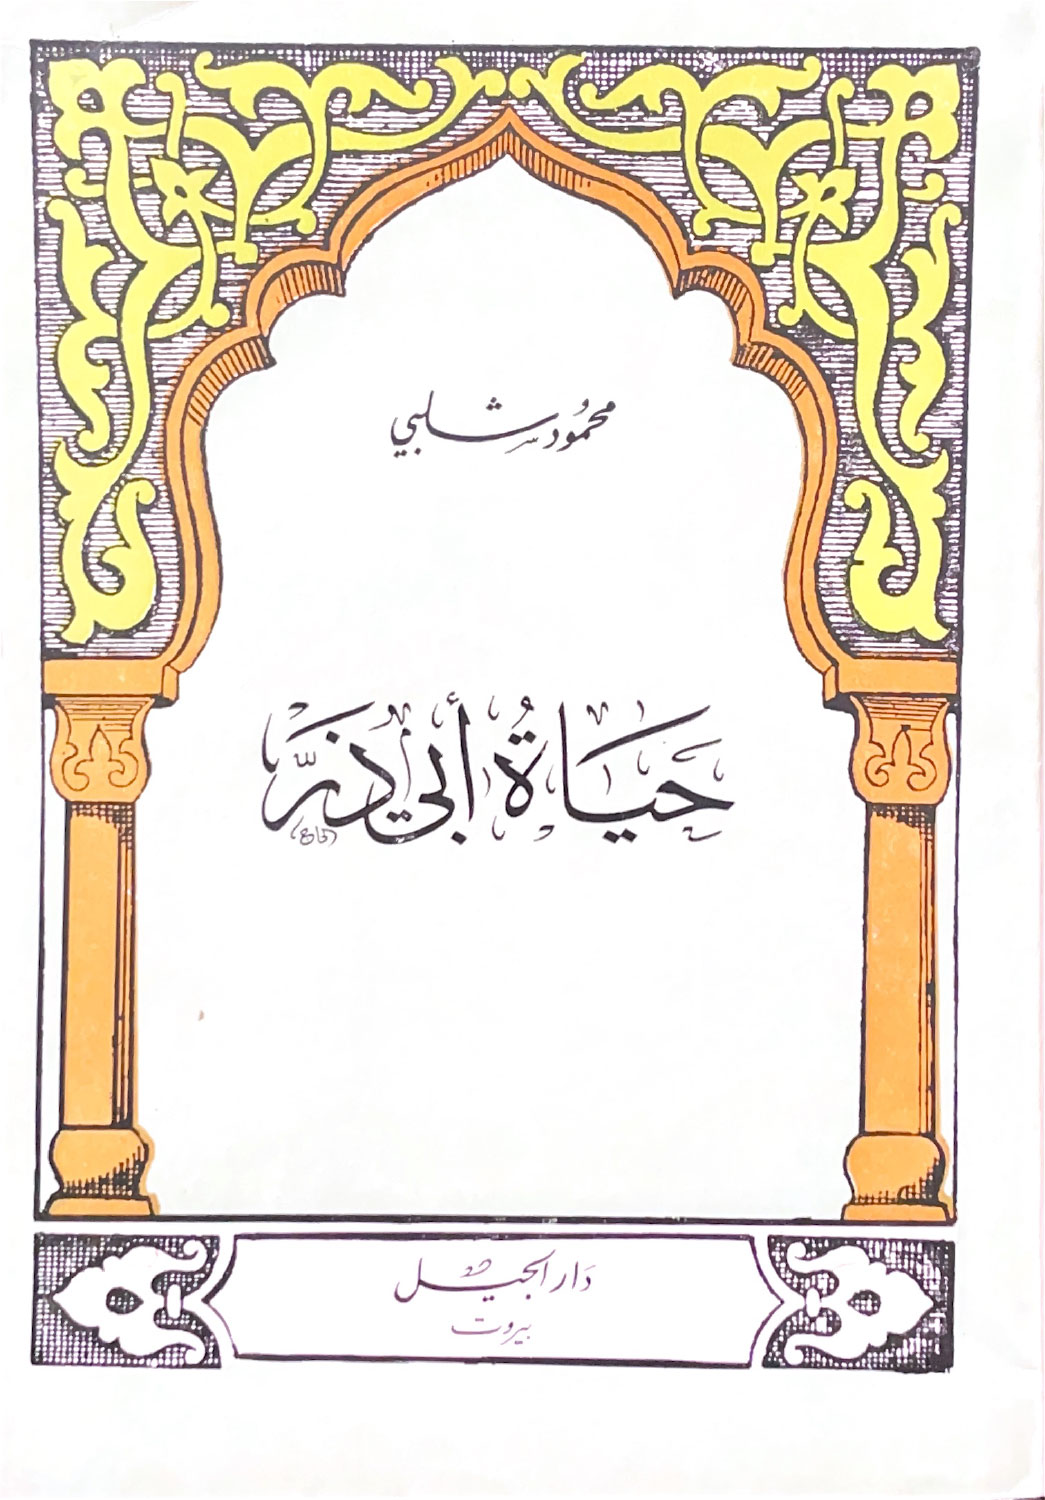 محمُود شلبي
حَيَاةُ أبي ذَرّ
دَار الجيل
بيروت